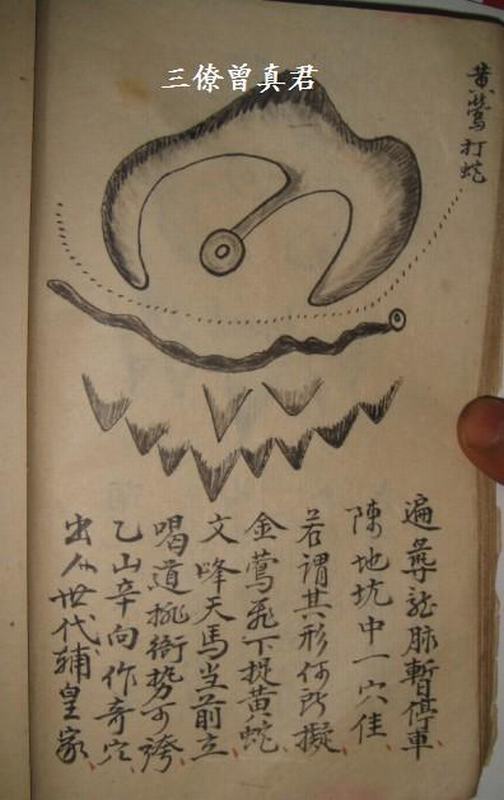 三僚曾真君
黄鶯打蛇
遍尋龍脉暫停車
陳地坑中一穴佳
若谓其形何所擬
金鶯飛下捉黄蛇
文峰天馬当前立
喝道排衙势可誇
乙山辛向作奇穴
出人世代辅皇家